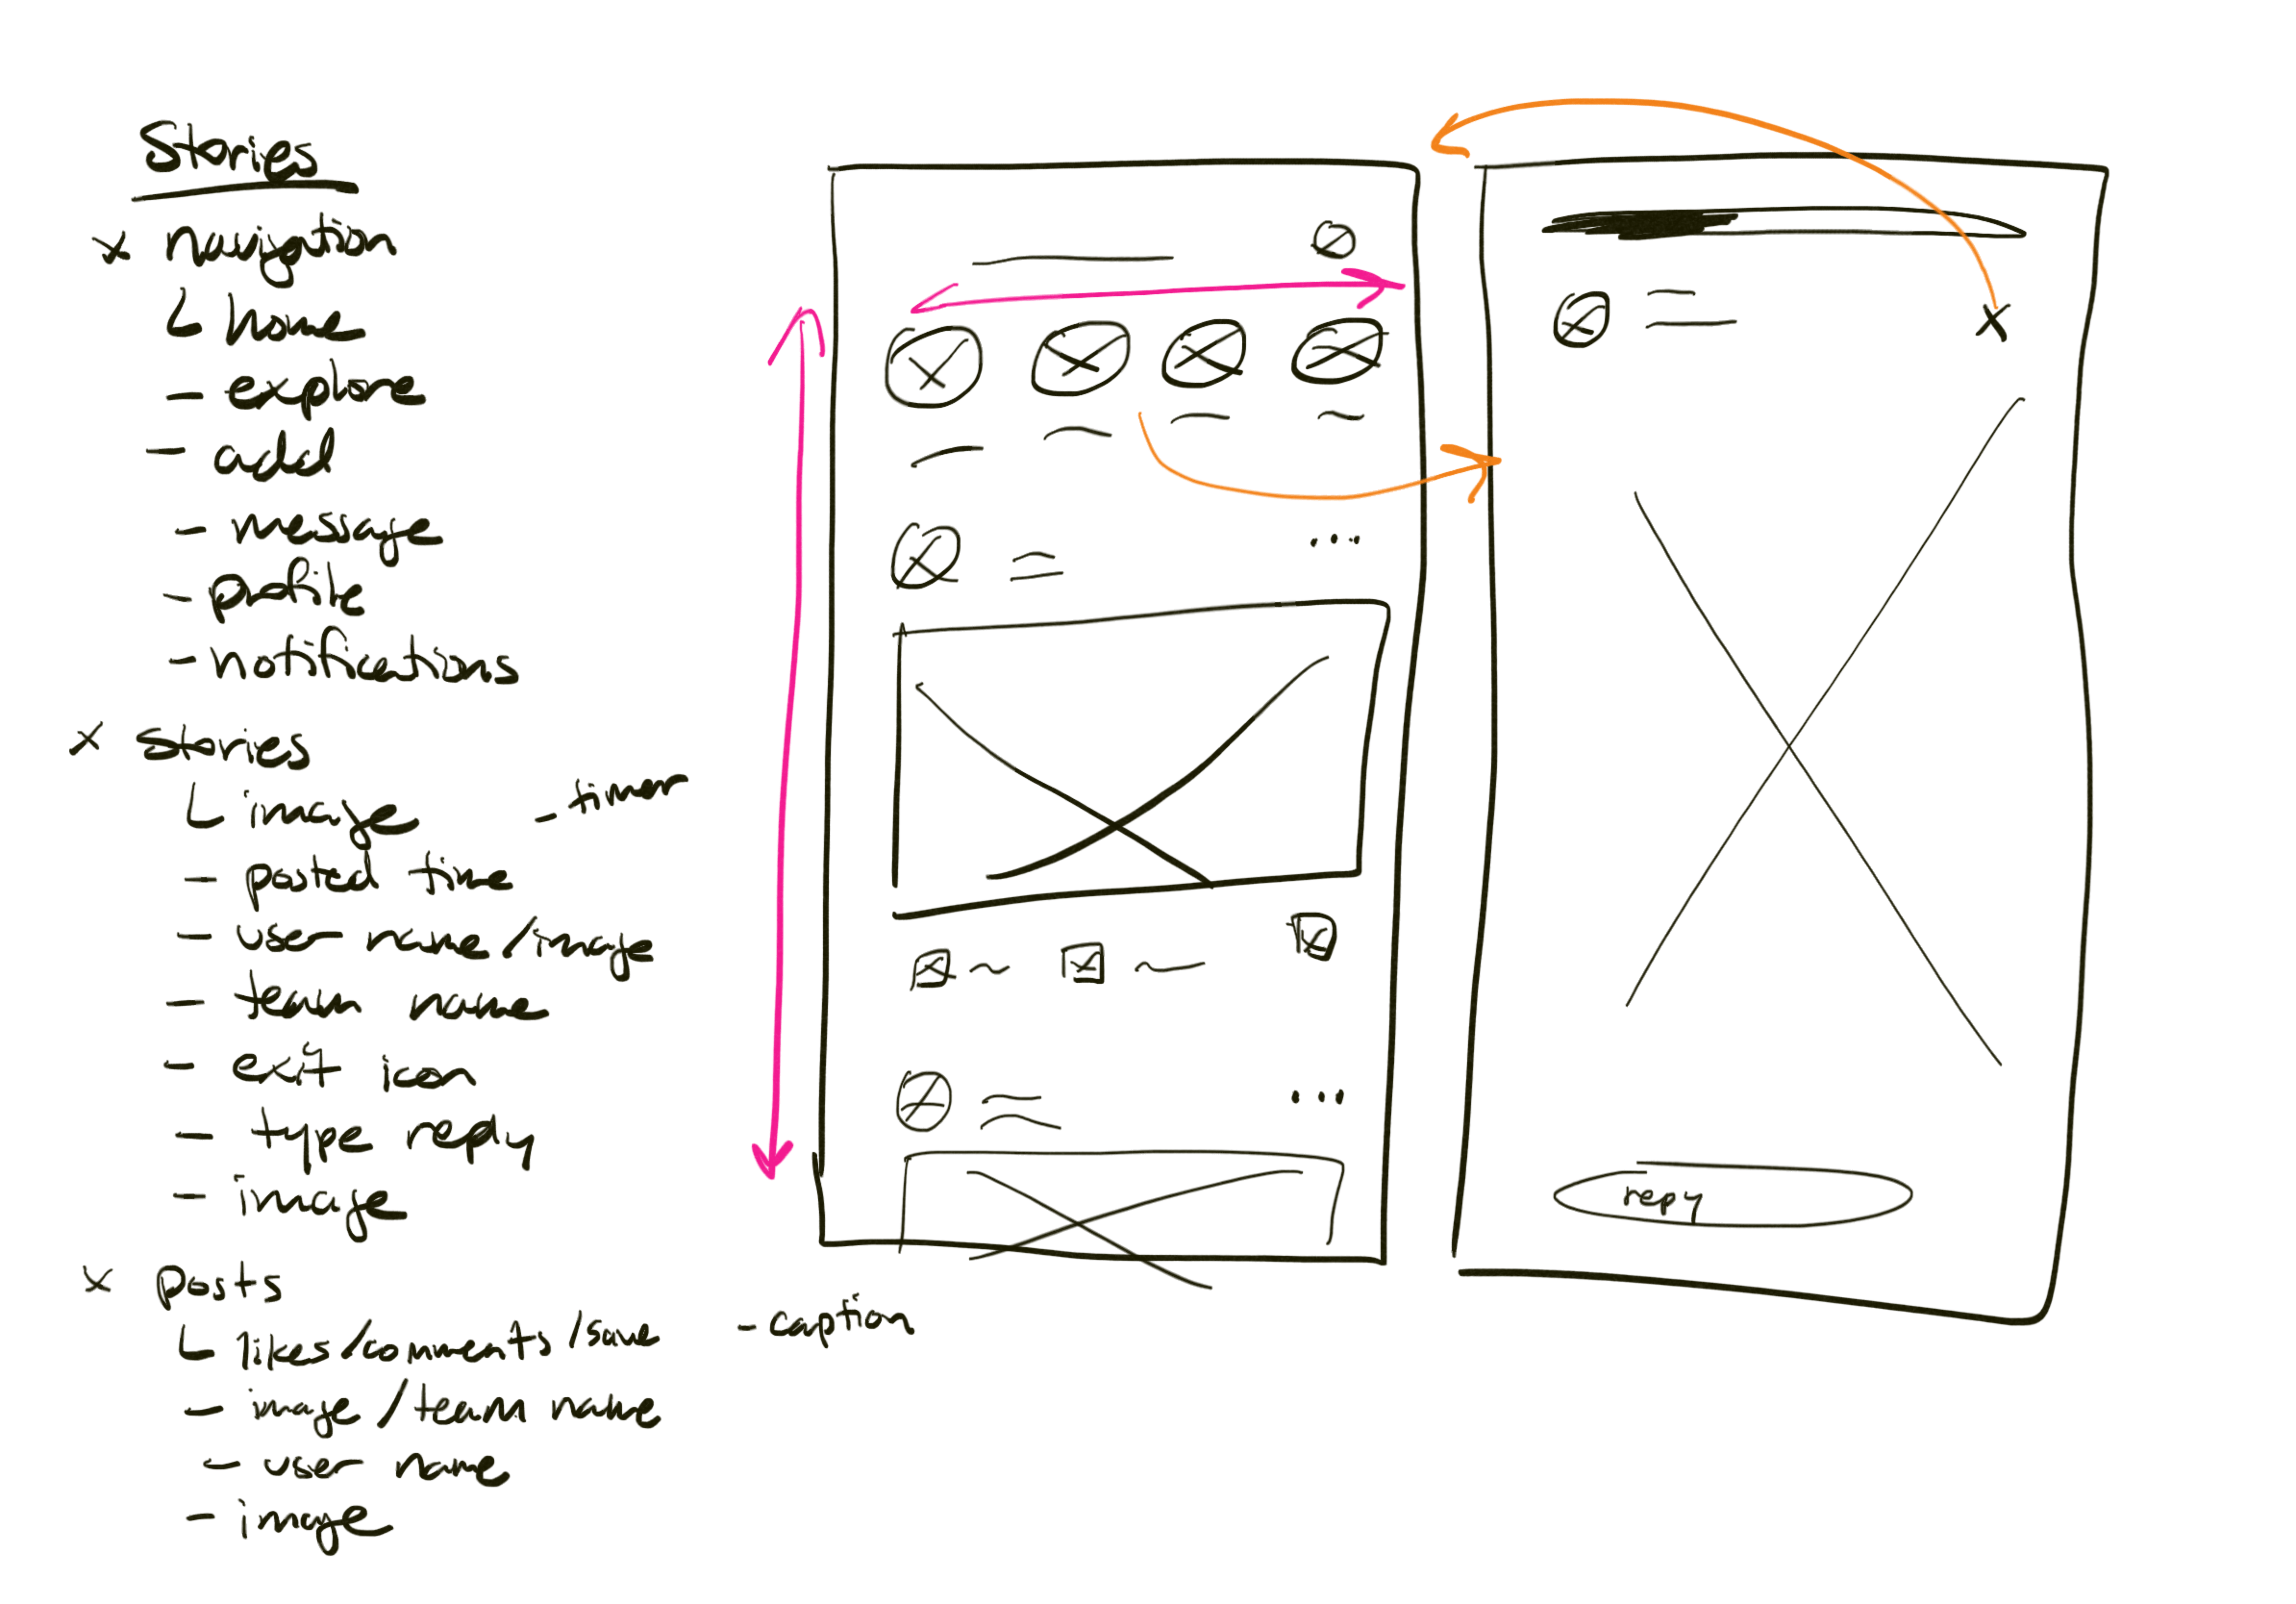 Stories
x navigation
↳ home
- explore
- add
- message
- profile
- notifications
x stories
↳ image - timer
- posted time
- user name/image
- team name
- exit icon
- type reply
- image
x posts
↳ likes/comments/save - caption
- image/team name
- user name
- image
X
repy